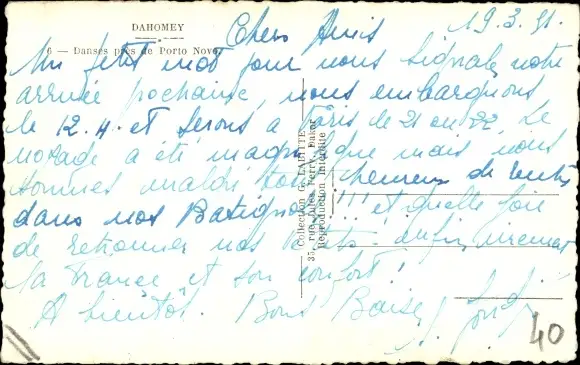 DAHOMEY
6 — Danses près de Porto Novo
19.3.51.
Chers Amis
Un petit mot pour vous signaler notre
arrivée prochaine, nous embarquons
le 12.4. et serons à Paris le 21 ou 22. Le
voyage a été magnifique mais nous
sommes malgré tout heureux de rentrer
dans nos Batignolles !!! et quelle joie
de retrouver nos enfin vivement
la France et son confort !
A bientôt. Bons Baisers
Collection G. LABITTE
35, rue Jules Ferry, Dakar
Reproduction interdite
40